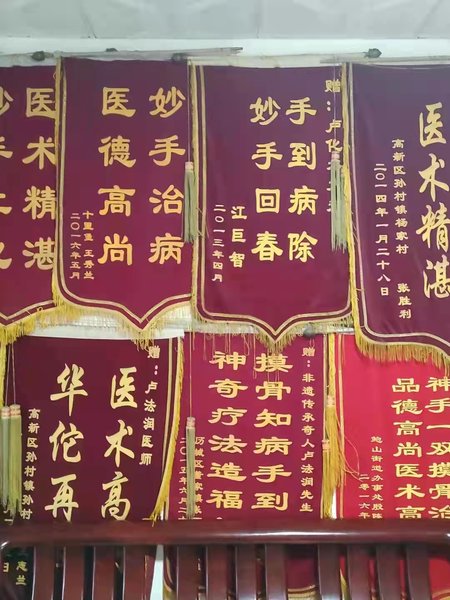 医术精湛
妙手治病
医德高尚
王秀兰
二〇一六年五月
赠:卢
手到病除
妙手回春
江巨智
二〇一三年四月
医术精湛
高新区孙村镇杨家村 张胜利
二〇一四年一月二十八日
赠:卢法润医师
医术高
华佗再
高新区孙村镇孙村
赠:非遗传承奇人卢法润先生
摸骨知病手到
神奇疗法造福
历城区
二〇一五年六
神手一双摸骨治
品德高尚医术高
鲍山街道办事处
二〇一六年